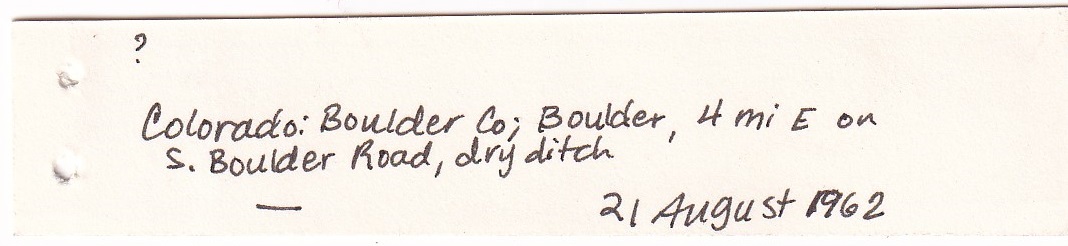 ?
Colorado: Boulder Co; Boulder, 4 mi E on
S. Boulder Road, dry ditch
— 21 August 1962